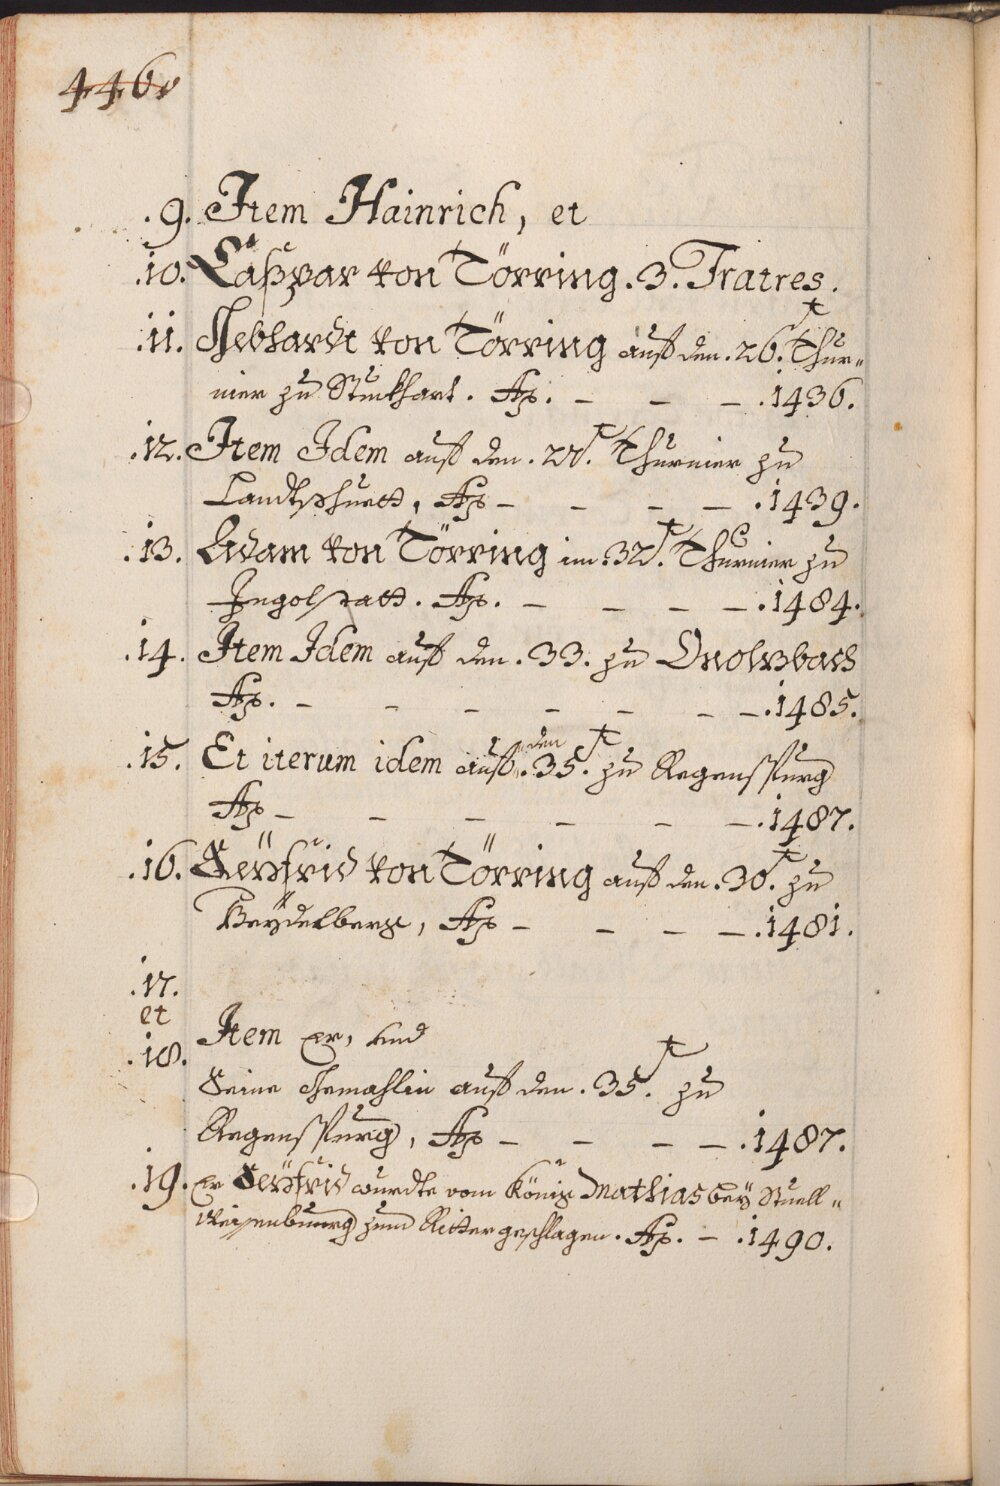 446v
.9. Item Hainrich, et
.10. Caßpar von Törring. 3. Fratres.
.11. Gebhardt von Törring auf den .26.t Thur=
nier zu Stuckhart. Ao. – – – .1436.
.12. Item Idem auf den .27.t Thurnier zu
Landtshuett, Ao – – – – .1439.
.13. Adam von Törring im .32.t Thurnier zu
Ingolstatt. Ao. – – – – .1484.
.14. Item Idem auf den .33. zu Onolzbach
Ao. – – – – – – – .1485.
.15. Et iterum idem auf den .35.t zu Regenspurg
Ao – – – – – – .1487.
.16. Seyfrid von Törring auf den .30.t zu
Heydelberg, Ao – – – – .1481.
.17.
et
.18. Item Er, und
Seine Gemahlin auf den .35.t zu
Regenspurg, Ao – – – – .1487.
.19. Er Seyfrid wurdte vom König Mathias bey Stuell=
Weissenbuurg zum Ritter geschlagen. Ao. – .1490.